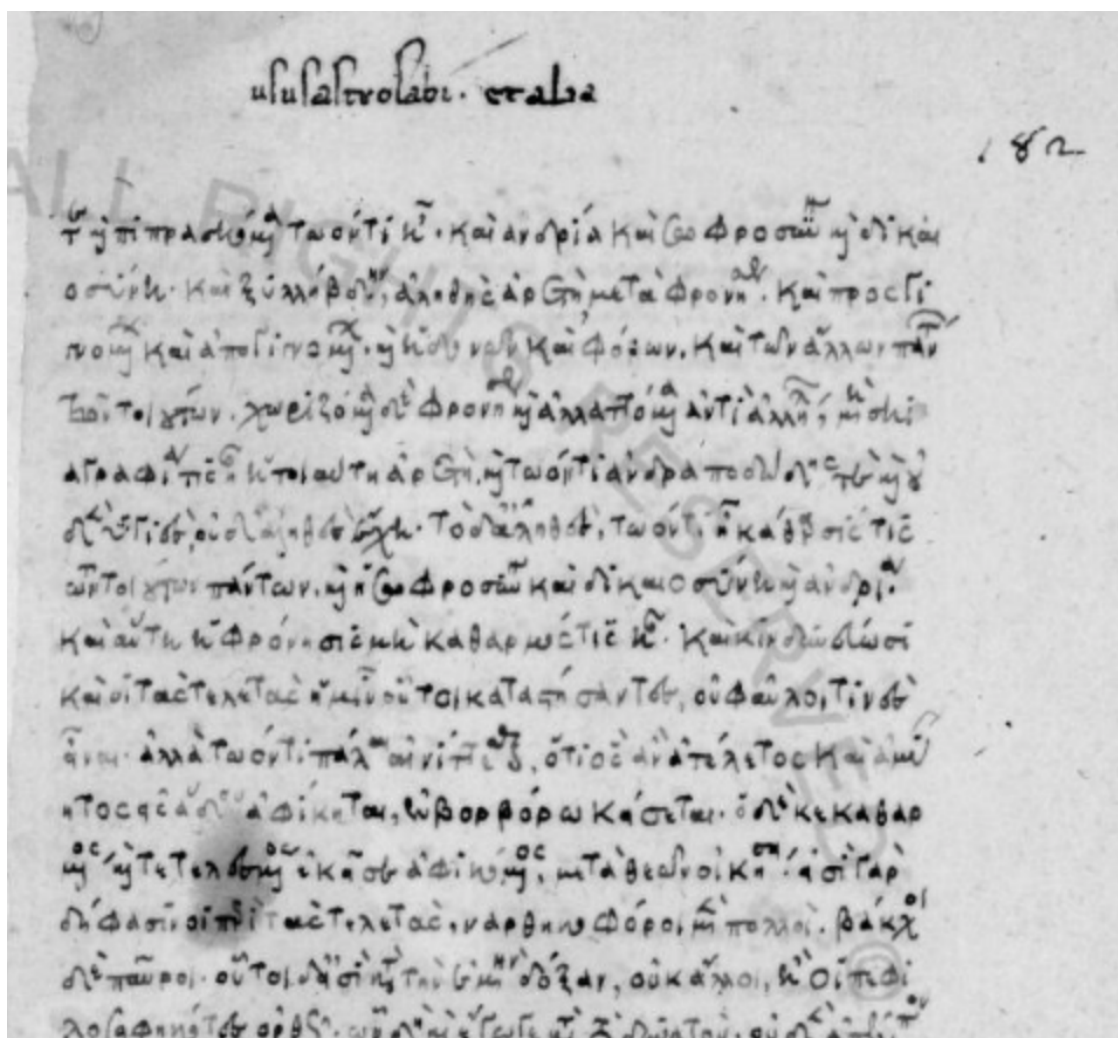 usus astrolabi. et alia
182
τε καὶ πιπρασκόμενα τῶ ὄντι ἦ. καὶ ανδρία καὶ σωφροσύνη καὶ δικαι
οσύνη. καὶ ξυλλήβδην, ἀληθὴς ἀρετὴ μετὰ φρονήσεως. καὶ προσγι
γνομένων καὶ ἀπογιγνομένων. καὶ ἡδονῶν καὶ φόβων. καὶ τῶν ἄλλων πάντων
τῶν τοιούτων. χωριζόμενα δὲ φρονήσεως καὶ ἀλλαττόμενα ἀντὶ ἀλλήλων, μὴ σκι
αγραφία τίς ἦ ἡ τοιαύτη ἀρετὴ, καὶ τῶ ὄντι ἀνδραποδώδης τε καὶ οὐ
δὲν ὑγιὲς, οὐδ' ἀληθὲς ἔχη. τὸ δ' ἀληθὲς, τῶ ὄντι ἦ κάθαρσίς τις
τῶν τοιούτων πάντων. καὶ ἡ σωφροσύνη καὶ δικαιοσύνη καὶ ἀνδρία.
καὶ αὐτὴ ἡ φρόνησις μὴ καθαρμός τις ἦ. καὶ κινδυνεύωσι
καὶ οἱ τὰς τελετὰς ἡμῖν οὗτοι καταστήσαντες, οὐ φαῦλοι τινὲς
εἶναι. ἀλλὰ τῶ ὄντι πάλαι αἰνίττεσθαι, ὅτι ὃς ἂν ἀτέλετος καὶ ἀμύ
ητος εἰς ἅδου ἀφίκηται, ἐν βορβόρω κείσεται. ὁ δὲ κεκαθαρ
μένος καὶ τετελεσμένος ἐκεῖσε ἀφικόμενος, μετὰ θεῶν οἰκήσει. εἰσὶ γὰρ
δή φασιν οἱ περὶ τὰς τελετὰς, ναρθηκοφόροι μὲν πολλοὶ. βάκχοι
δὲ παῦροι. οὗτοι δ' εἰσὶ κατὰ τὴν ἐμὴν δόξαν, οὐκ ἄλλοι, ἢ οἱ πεφι